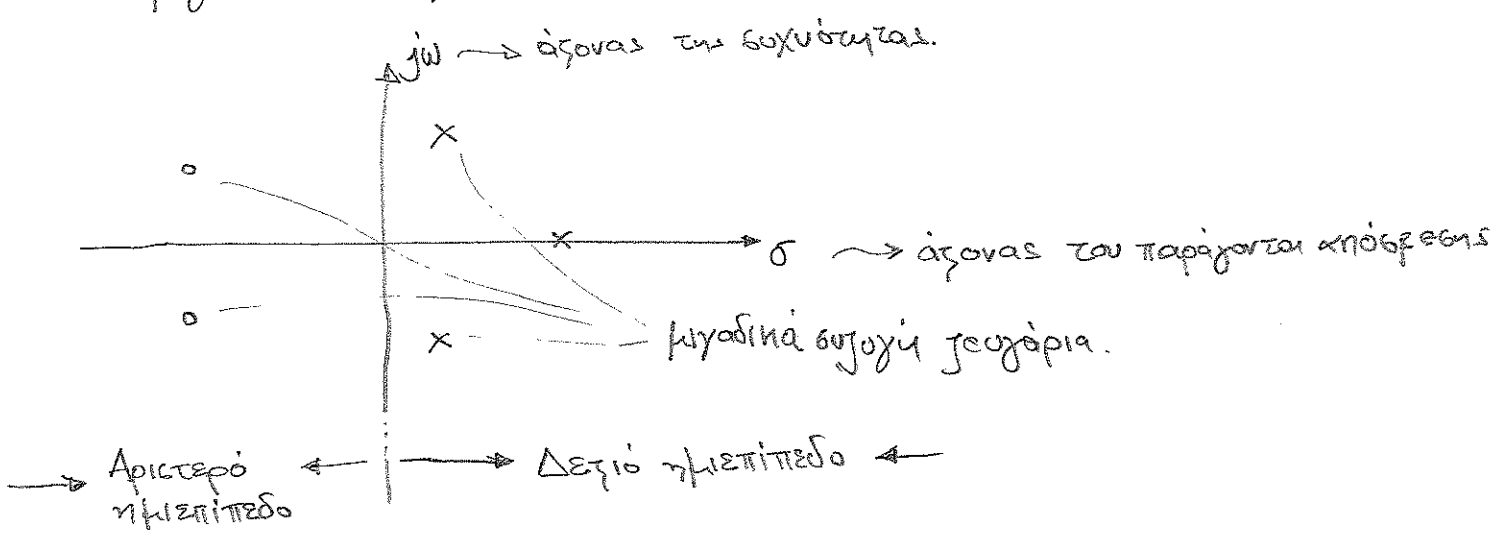 jω → άξονας της συχνότητας.
σ → άξονας του παράγοντα απόσβεσης
μιγαδικά συζυγή ζευγάρια.
Αριστερό
ημιεπίπεδο
Δεξιό ημιεπίπεδο